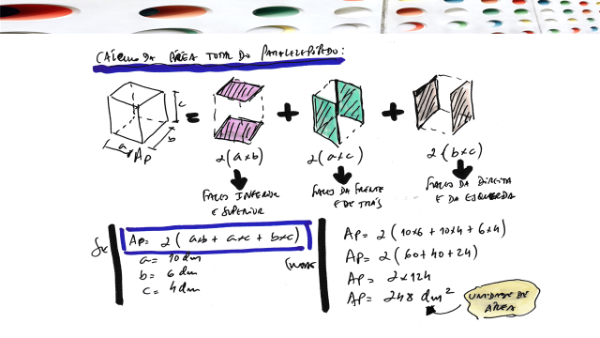 CÁLCULO DA ÁREA TOTAL DO PARALELEPÍPEDO:
a
b
c
Ap
=
+
+
2(a×b)
2(a×c)
2(b×c)
FACES INFERIOR
E SUPERIOR
FACES DA FRENTE
E DE TRÁS
FACES DA DIREITA
E DA ESQUERDA
Ap= 2(a×b + a×c + b×c)
a= 10 dm
b= 6 dm
c= 4 dm
Ap= 2(10×6 + 10×4 + 6×4)
Ap= 2(60+40+24)
Ap= 2×124
Ap= 248 dm²
UNIDADE DE
ÁREA